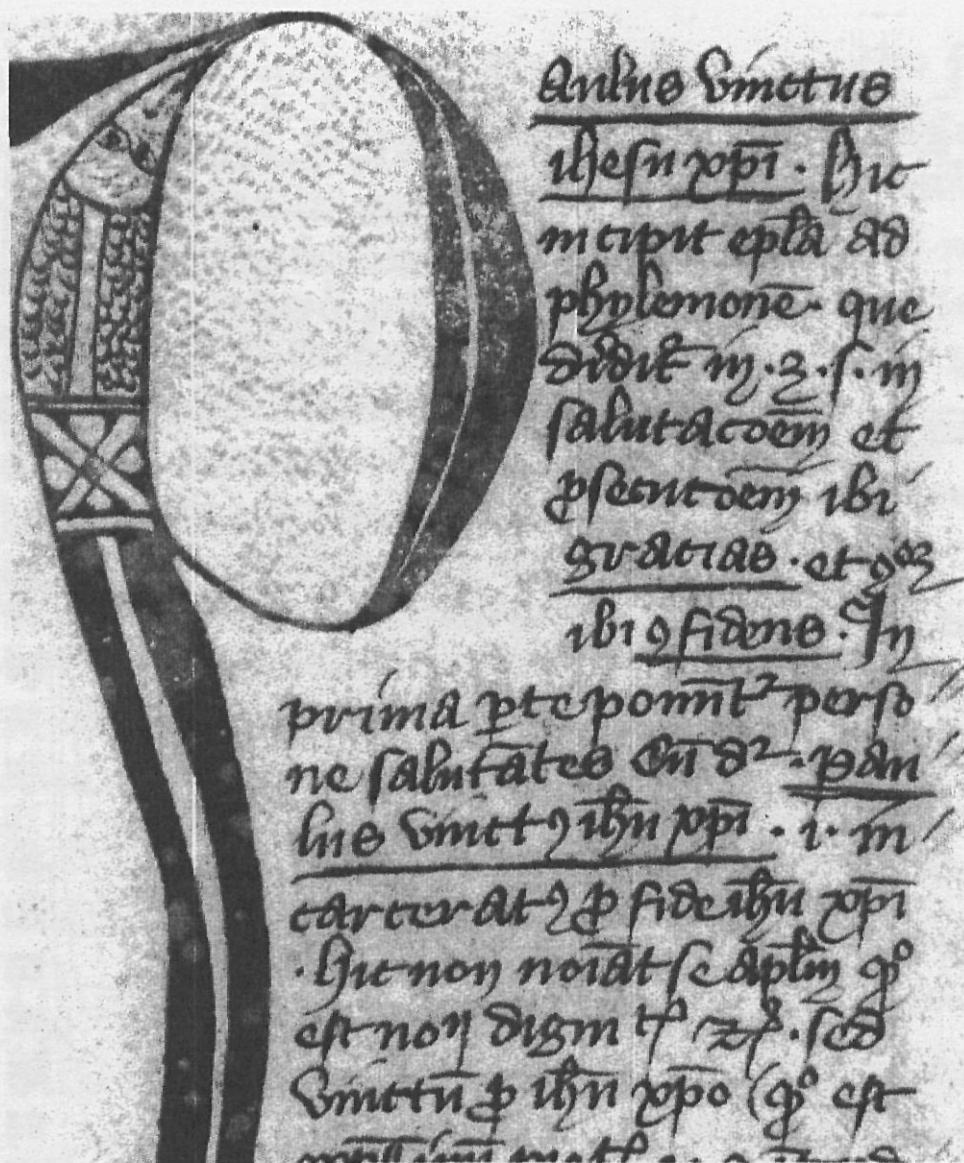 Paulus vinctus
ihesu xpī · Hic
incipit epl̄a ad
phylemonē · que
diūdit̄ in · 3 · s · in
salutacōem et
ꝓsecucōem ibi
gracias · et
ibi ꝯfidens · In
prima ꝑte ponūt² perso
ne salutātes Cū d² · Pau
lus vinctꝯ ih̄u xpī · i · in
carceratꝯ ꝓ fide ih̄u xpī
· Hic non noīat se apl̄m qº
est noīs digni sed
vinctū ꝓ ih̄u xpō qº est